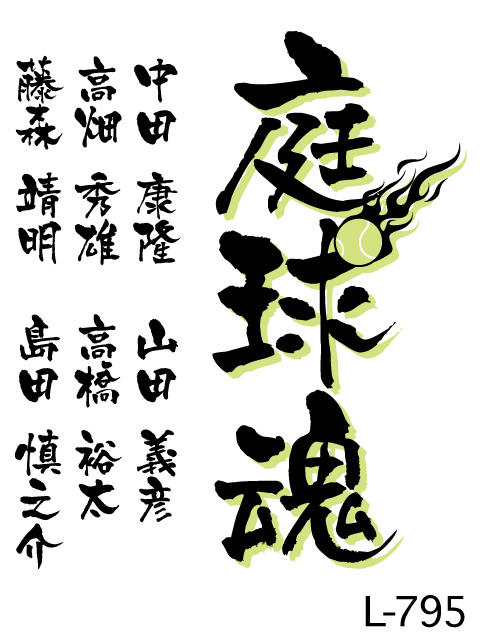 庭球魂
中田 康隆 山田 義彦
高畑 秀雄 高橋 裕太
藤森 靖明 島田 慎之介
L-795